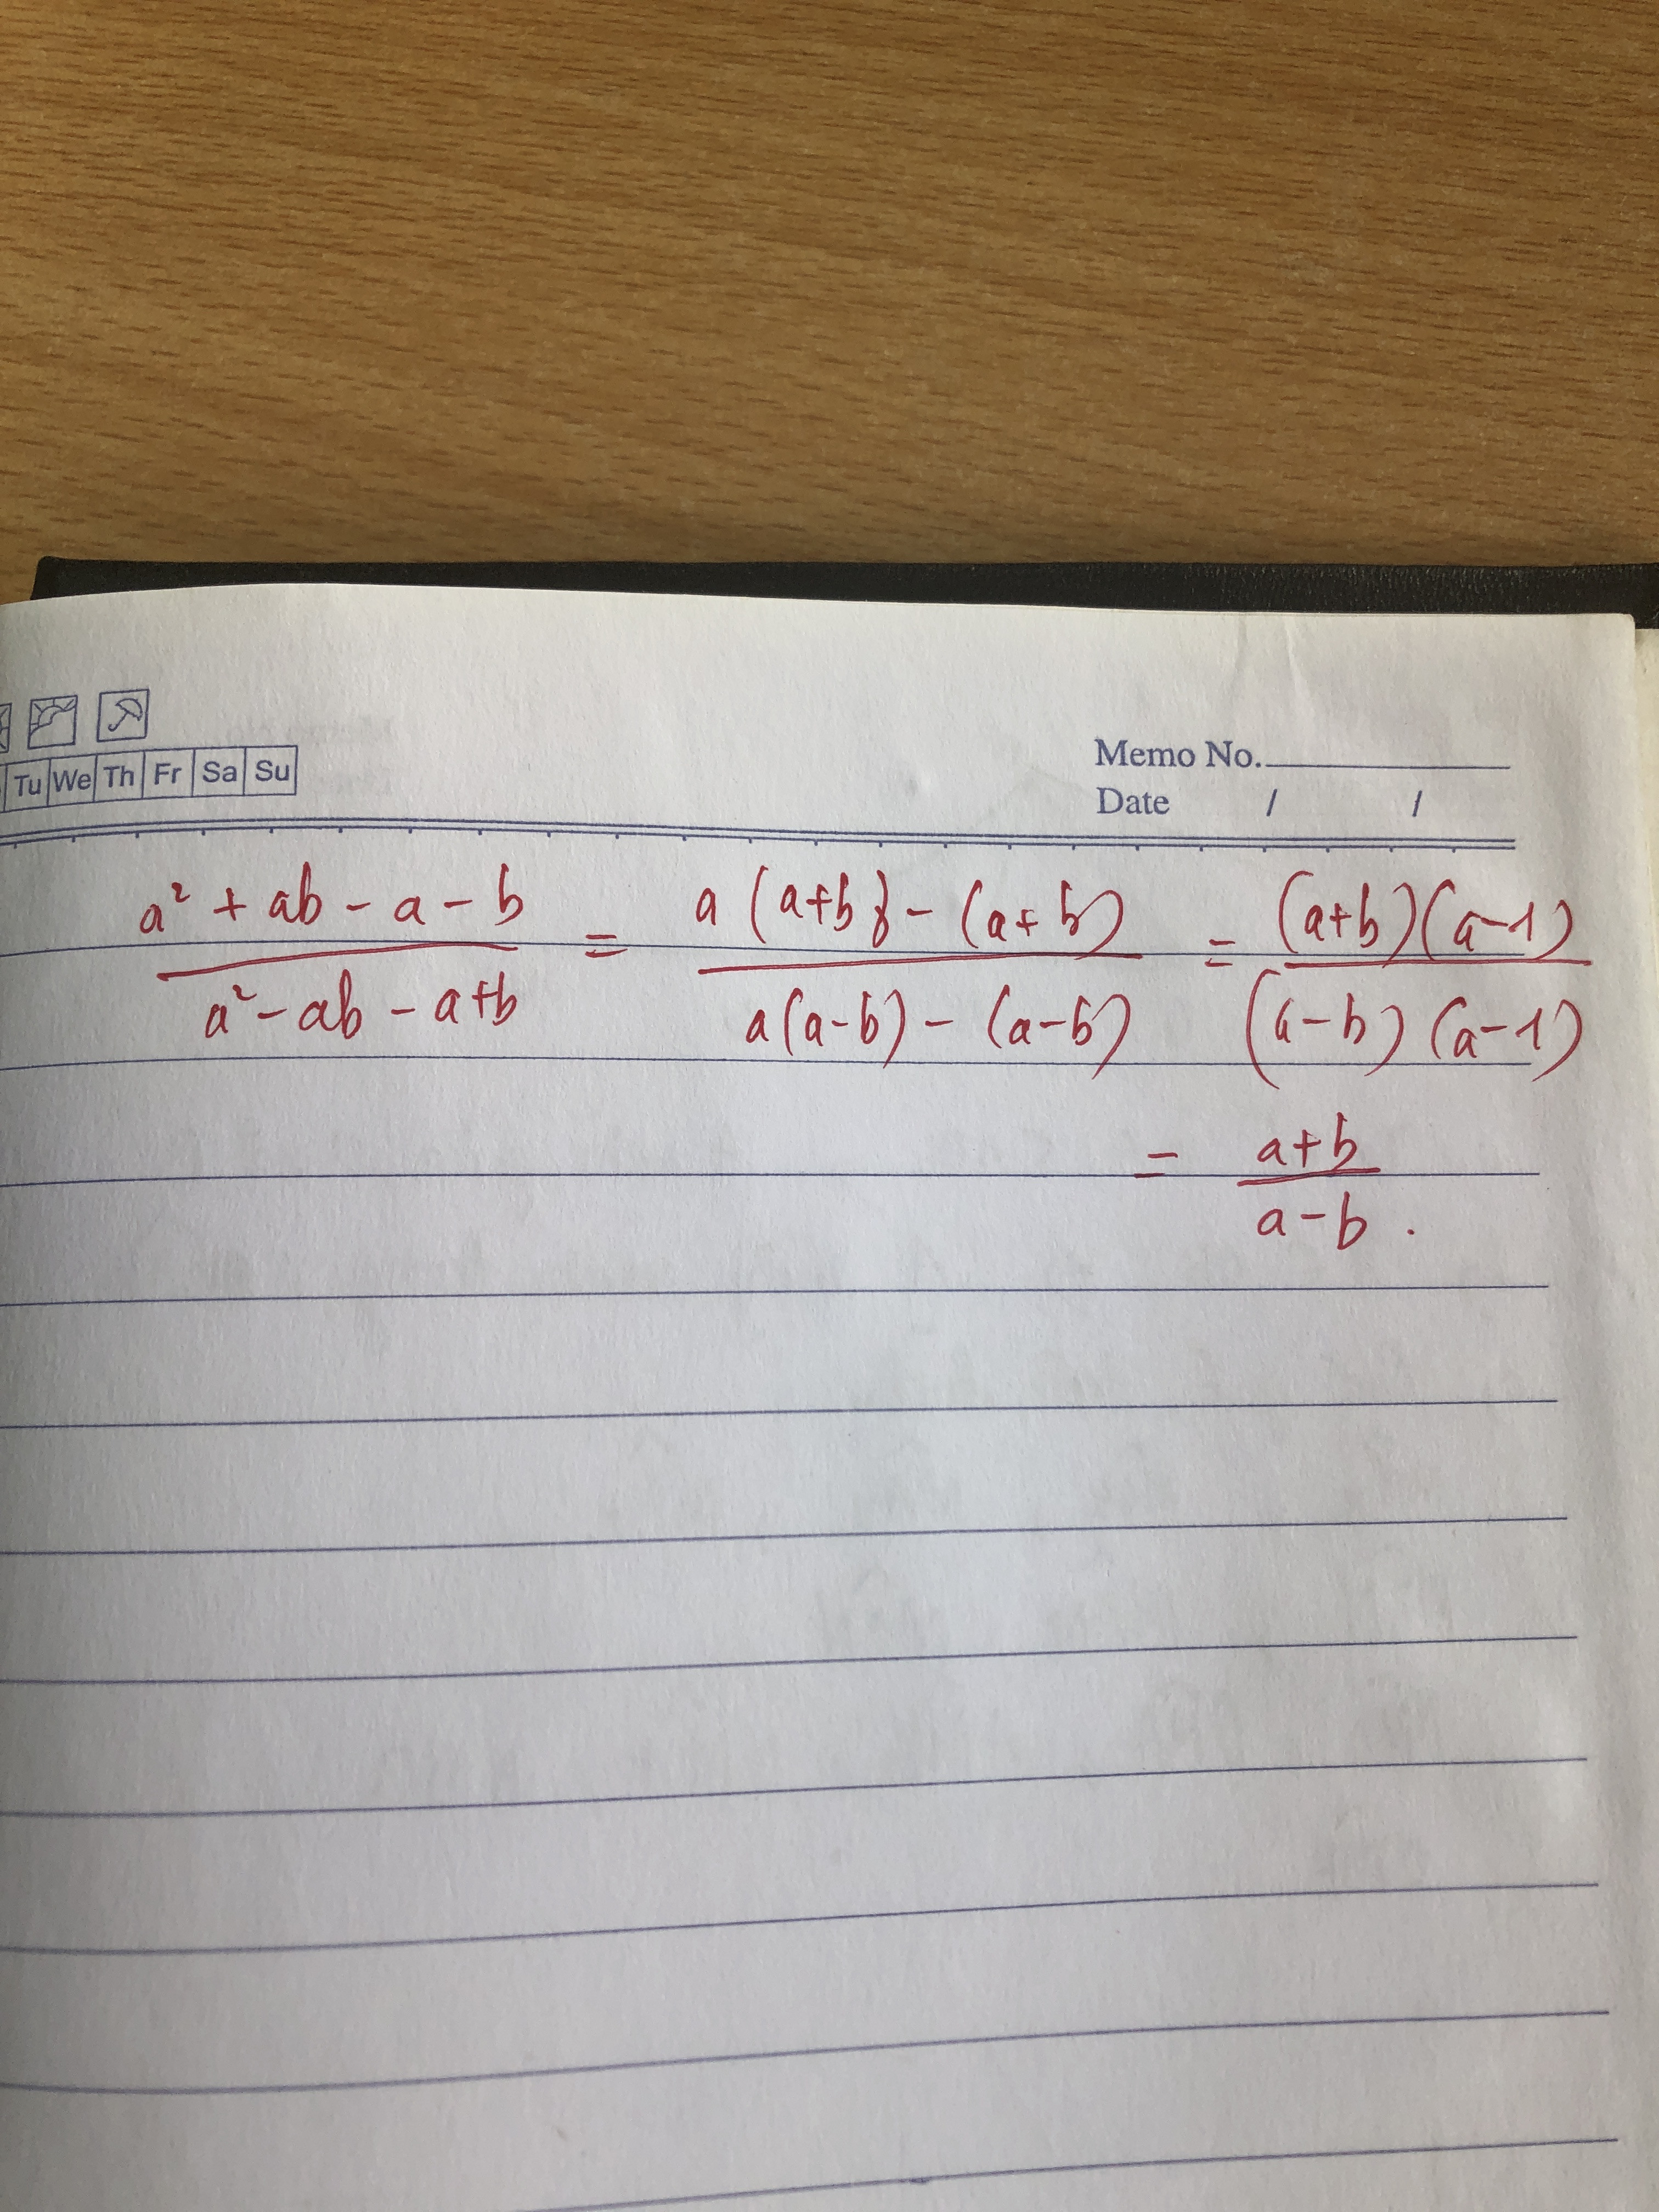 Tu We Th Fr Sa Su
Memo No.
Date / /
a² + ab - a - b / a² - ab - a + b = a(a+b) - (a+b) / a(a-b) - (a-b) = (a+b)(a-1) / (a-b)(a-1)
= a+b / a-b .